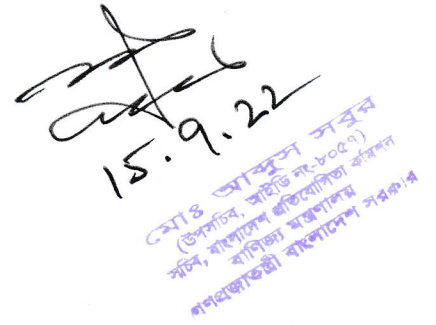 15.9.22
মোঃ আব্দুস সবুর
(উপসচিব, আইডি নং-৮০৫৭)
সচিব, বাংলাদেশ প্রতিযোগিতা কমিশন
বাণিজ্য মন্ত্রণালয়
গণপ্রজাতন্ত্রী বাংলাদেশ সরকার